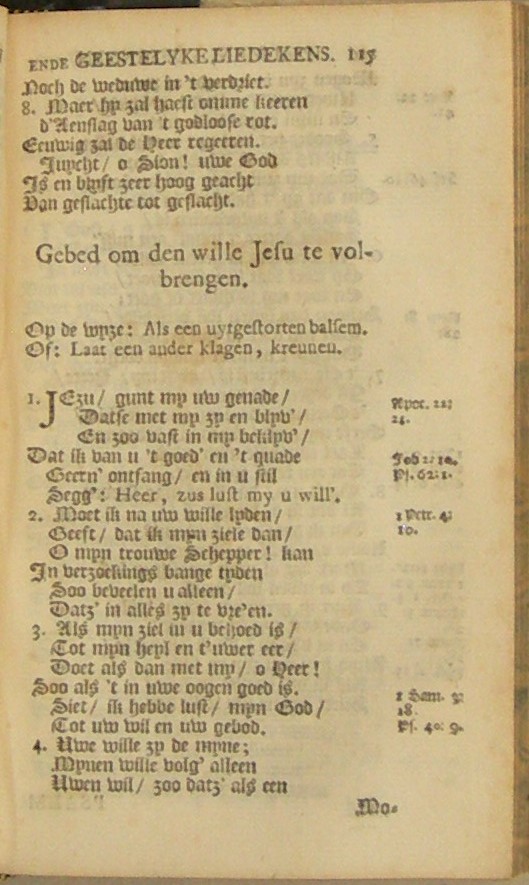 ENDE GEESTELYKE LIEDEKENS. 115
Noch de weduwe in 't verdriet.
8. Maer hy zal haest omme keeren
d'Aenslag van 't godloose rot.
Eeuwig zal de Heer regeeren.
Juycht / o Sion! uwe God
Is en blyft zeer hoog geacht
Van geslachte tot geslacht.
Gebed om den wille Jesu te vol-
brengen.
Op de wyze: Als een uytgestorten balsem.
Of: Laat een ander klagen, kreunen.
1. JEzu / gunt my uw genade /
Datse met my zy en blyv' /
En zoo vast in my beklyv' /
Dat ik van u 't goed' en 't quade
Geern' ontfang / en in u stil
Segg': Heer, zus lust my u will'.
2. Moet ik na uw wille lyden /
Geeft / dat ik myn ziele dan /
O myn trouwe Schepper! kan
In verzoekings bange tyden
Soo beveelen u alleen /
Datz' in alles zy te vre'en.
3. Als myn ziel in u behoed is /
Tot myn heyl en t'uwer eer /
Doet als dan met my / o Heer!
Soo als 't in uwe oogen goed is.
Siet / ik hebbe lust / myn God /
Tot uw wil en uw gebod.
4. Uwe wille zy de myne;
Mynen wille volg' alleen
Uwen wil / zoo datz' als een
Mo-
Apoc. 22:
21.
Job 2: 10.
Ps. 62: 1.
1 Petr. 4:
19.
1 Sam. 3:
18.
Ps. 40: 9.